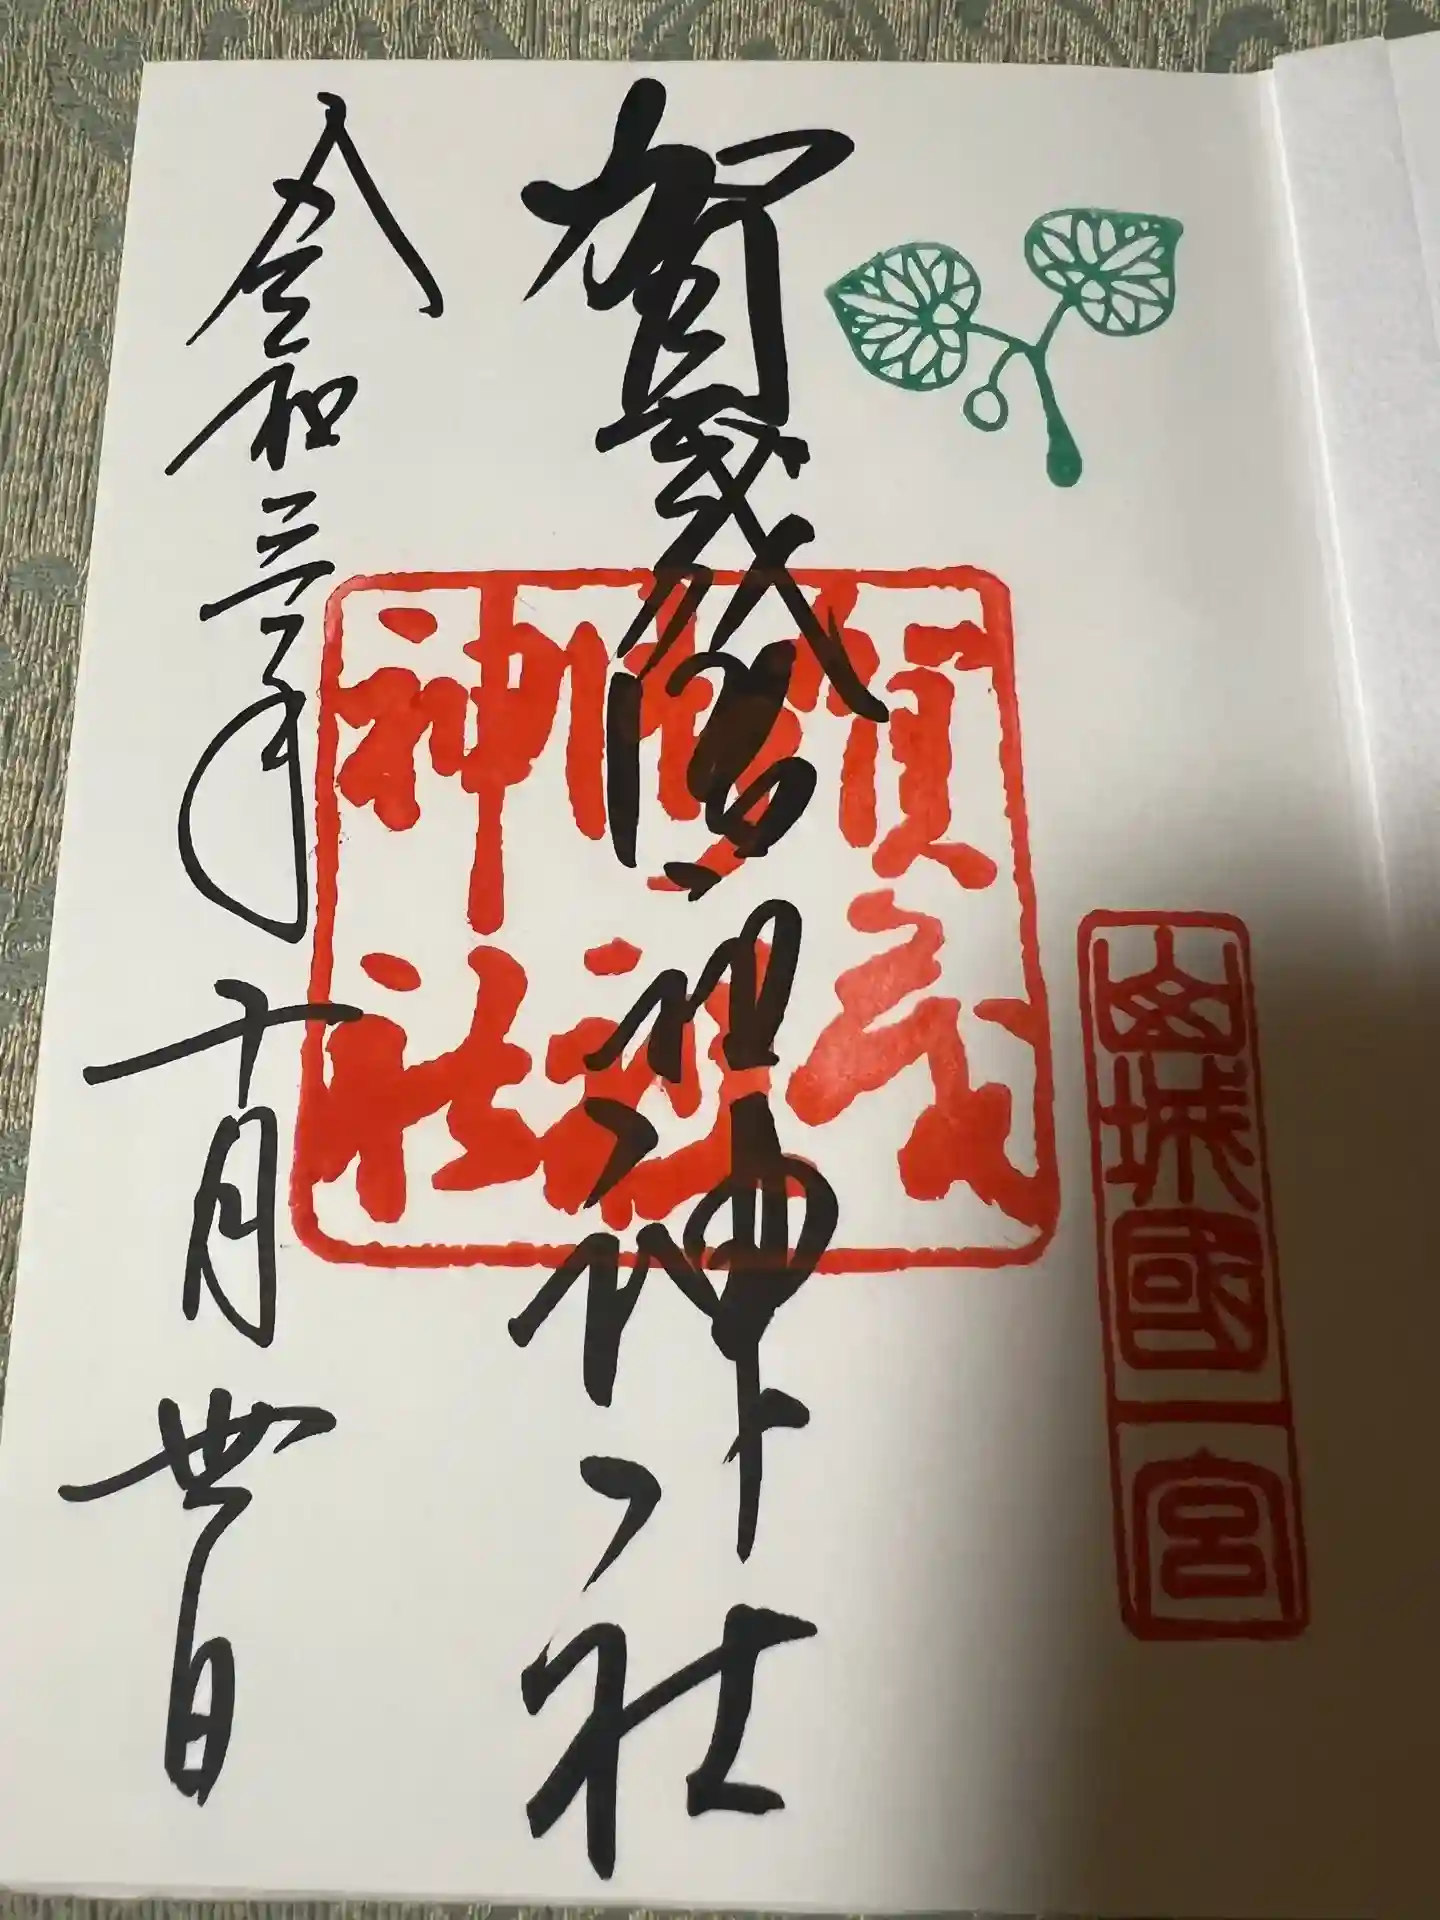 山城國一宮
賀茂御祖神社
賀茂
御祖
神社
令和三年十月丗日